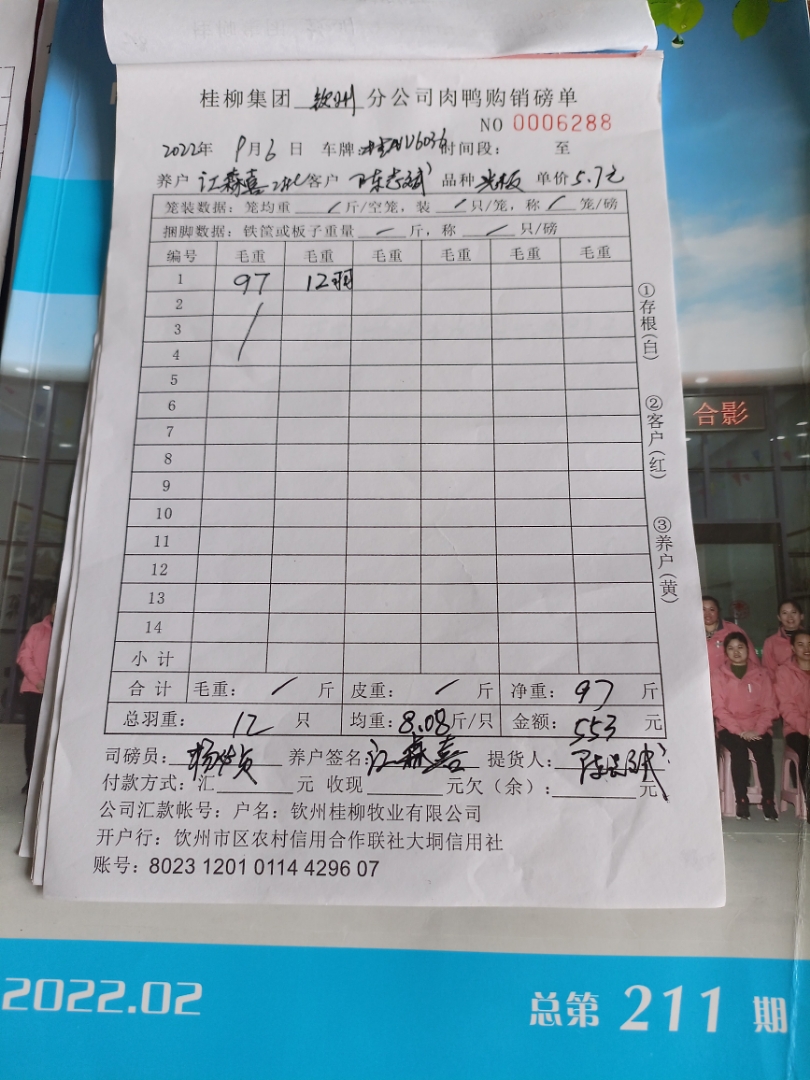 桂柳集团 钦州 分公司肉鸭购销磅单
NO 0006288
2022年 9月6日 车牌: 时间段: 至
养户 江森喜 客户 陈志斌 品种 光板 单价 5.7元
笼装数据: 笼均重 / 斤/空笼, 装 / 只/笼, 称 / 笼/磅
捆脚数据: 铁筐或板子重量 / 斤, 称 / 只/磅
编号 毛重 毛重 毛重 毛重 毛重 毛重
1 97 12羽
2 /
3
4
5
6
7
8
9
10
11
12
13
14
小计
合计 毛重: / 斤 皮重: / 斤 净重: 97 斤
总羽重: 12 只 均重: 8.08斤/只 金额: 553 元
司磅员: 养户签名: 江森喜 提货人: 陈志斌
付款方式: 汇 元 收现 元欠(余): 元
公司汇款帐号: 户名: 钦州桂柳牧业有限公司
开户行: 钦州市区农村信用合作联社大垌信用社
账号: 8023 1201 0114 4296 07
①存根(白)
②客户(红)
③养户(黄)
合影
2022.02
总第 211 期